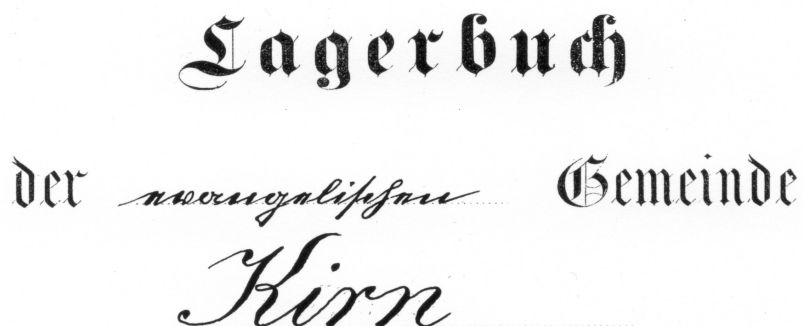 Lagerbuch
der evangelischen Gemeinde
Kirn